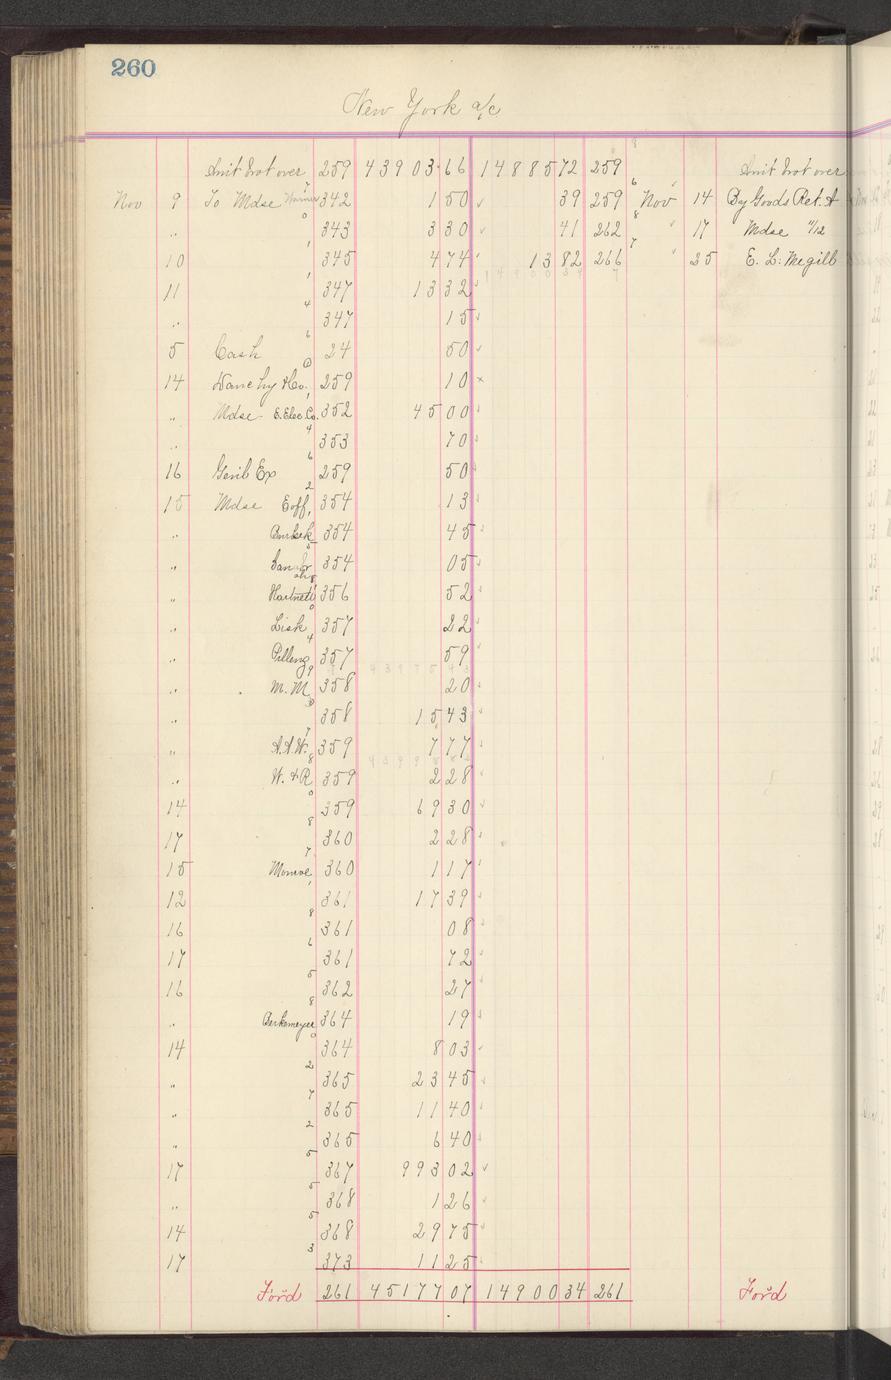 260
New York a/c
Amt brot over 259 43903.66 14885 72 259 Amt brot over
Nov 9 To Mdse 342 1 50 39 259 Nov 14 By Goods Ret. A
" 343 3 30 41 262 17 Mdse 11/12
10 345 4 74 13 82 266 25 E. L. Megill
11 347 13 32
" 347 15
5 Cash 24 50
14 259 10
" Mdse E. Elec Co. 352 45 00
" 353 70
16 Genl Ex 259 50
15 Mdse Eoff, 354 13
" 354 45
" 354 05
" Hartnett 356 52
" Lisk 357 22
" Pilling 357 59
" M. M 358 20
" 358 15 43
" A. A. W. 359 7 77
" W. & R 359 2 28
14 359 69 30
17 360 2 28
15 Monroe 360 1 17
12 361 17 39
16 361 08
17 361 72
16 362 27
" Berkemeyer 364 19
14 364 8 03
" 365 23 45
" 365 11 40
" 365 6 40
17 367 993 02
" 368 1 26
14 368 29 75
17 373 11 25
Ford 261 45177 07 14900 34 261 Ford